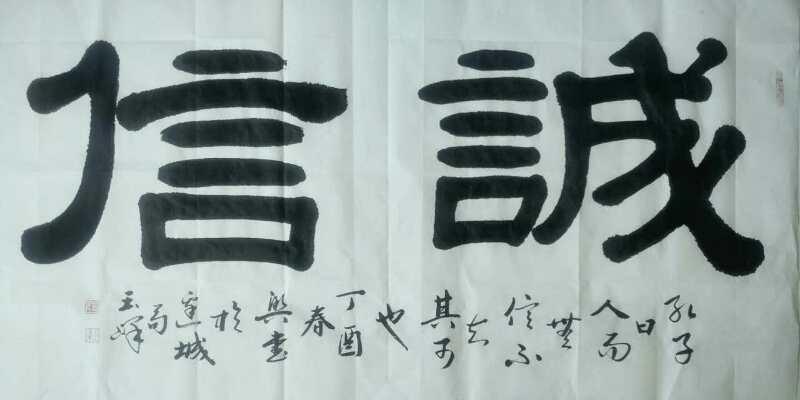 誠信
孔子
曰
人而
無
信不
知
其可
也
丁酉
春
興書
於
蓮城
局
玉峰